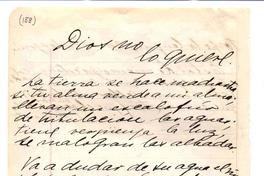 (188)
Dios no
lo quiere.
La tierra se hace madrastra
si tu alma vende a mi alma.
Llevan un escalofrío
de tribulación las aguas.
Tiene vergüenza la luz,
se malogran las
Va a dudar de su agua el